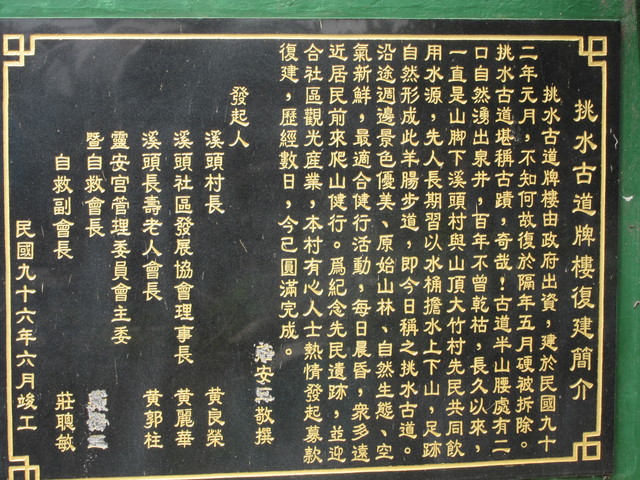 挑水古道牌樓復建簡介
挑水古道牌樓由政府出資，建於民國九十
二年元月，不知何故復於隔年五月硬被拆除。
挑水古道堪稱古蹟，奇哉！古道半山腰處有二
口自然湧出泉井，百年不曾乾枯，長久以來，
一直是山脚下溪頭村與山頂大竹村先民共同飲
用水源，先人長期習以水桶擔水上下山，足跡
自然形成此羊腸步道，即今日稱之挑水古道。
沿途週邊景色優美、原始山林、自然生態、空
氣新鮮，最適合健行活動，每日晨昏，衆多遠
近居民前來爬山健行。爲紀念先民遺跡，並迎
合社區觀光産業，本村有心人士熱情發起募款
復建，歷經數日，今已圓滿完成。
安 敬撰
發起人
溪頭村長 黃良榮
溪頭社區發展協會理事長 黃麗華
溪頭長壽老人會長 黃郭柱
靈安宮管理委員會主委
暨自救會長
自救副會長 莊聰敏
民國九十六年六月竣工